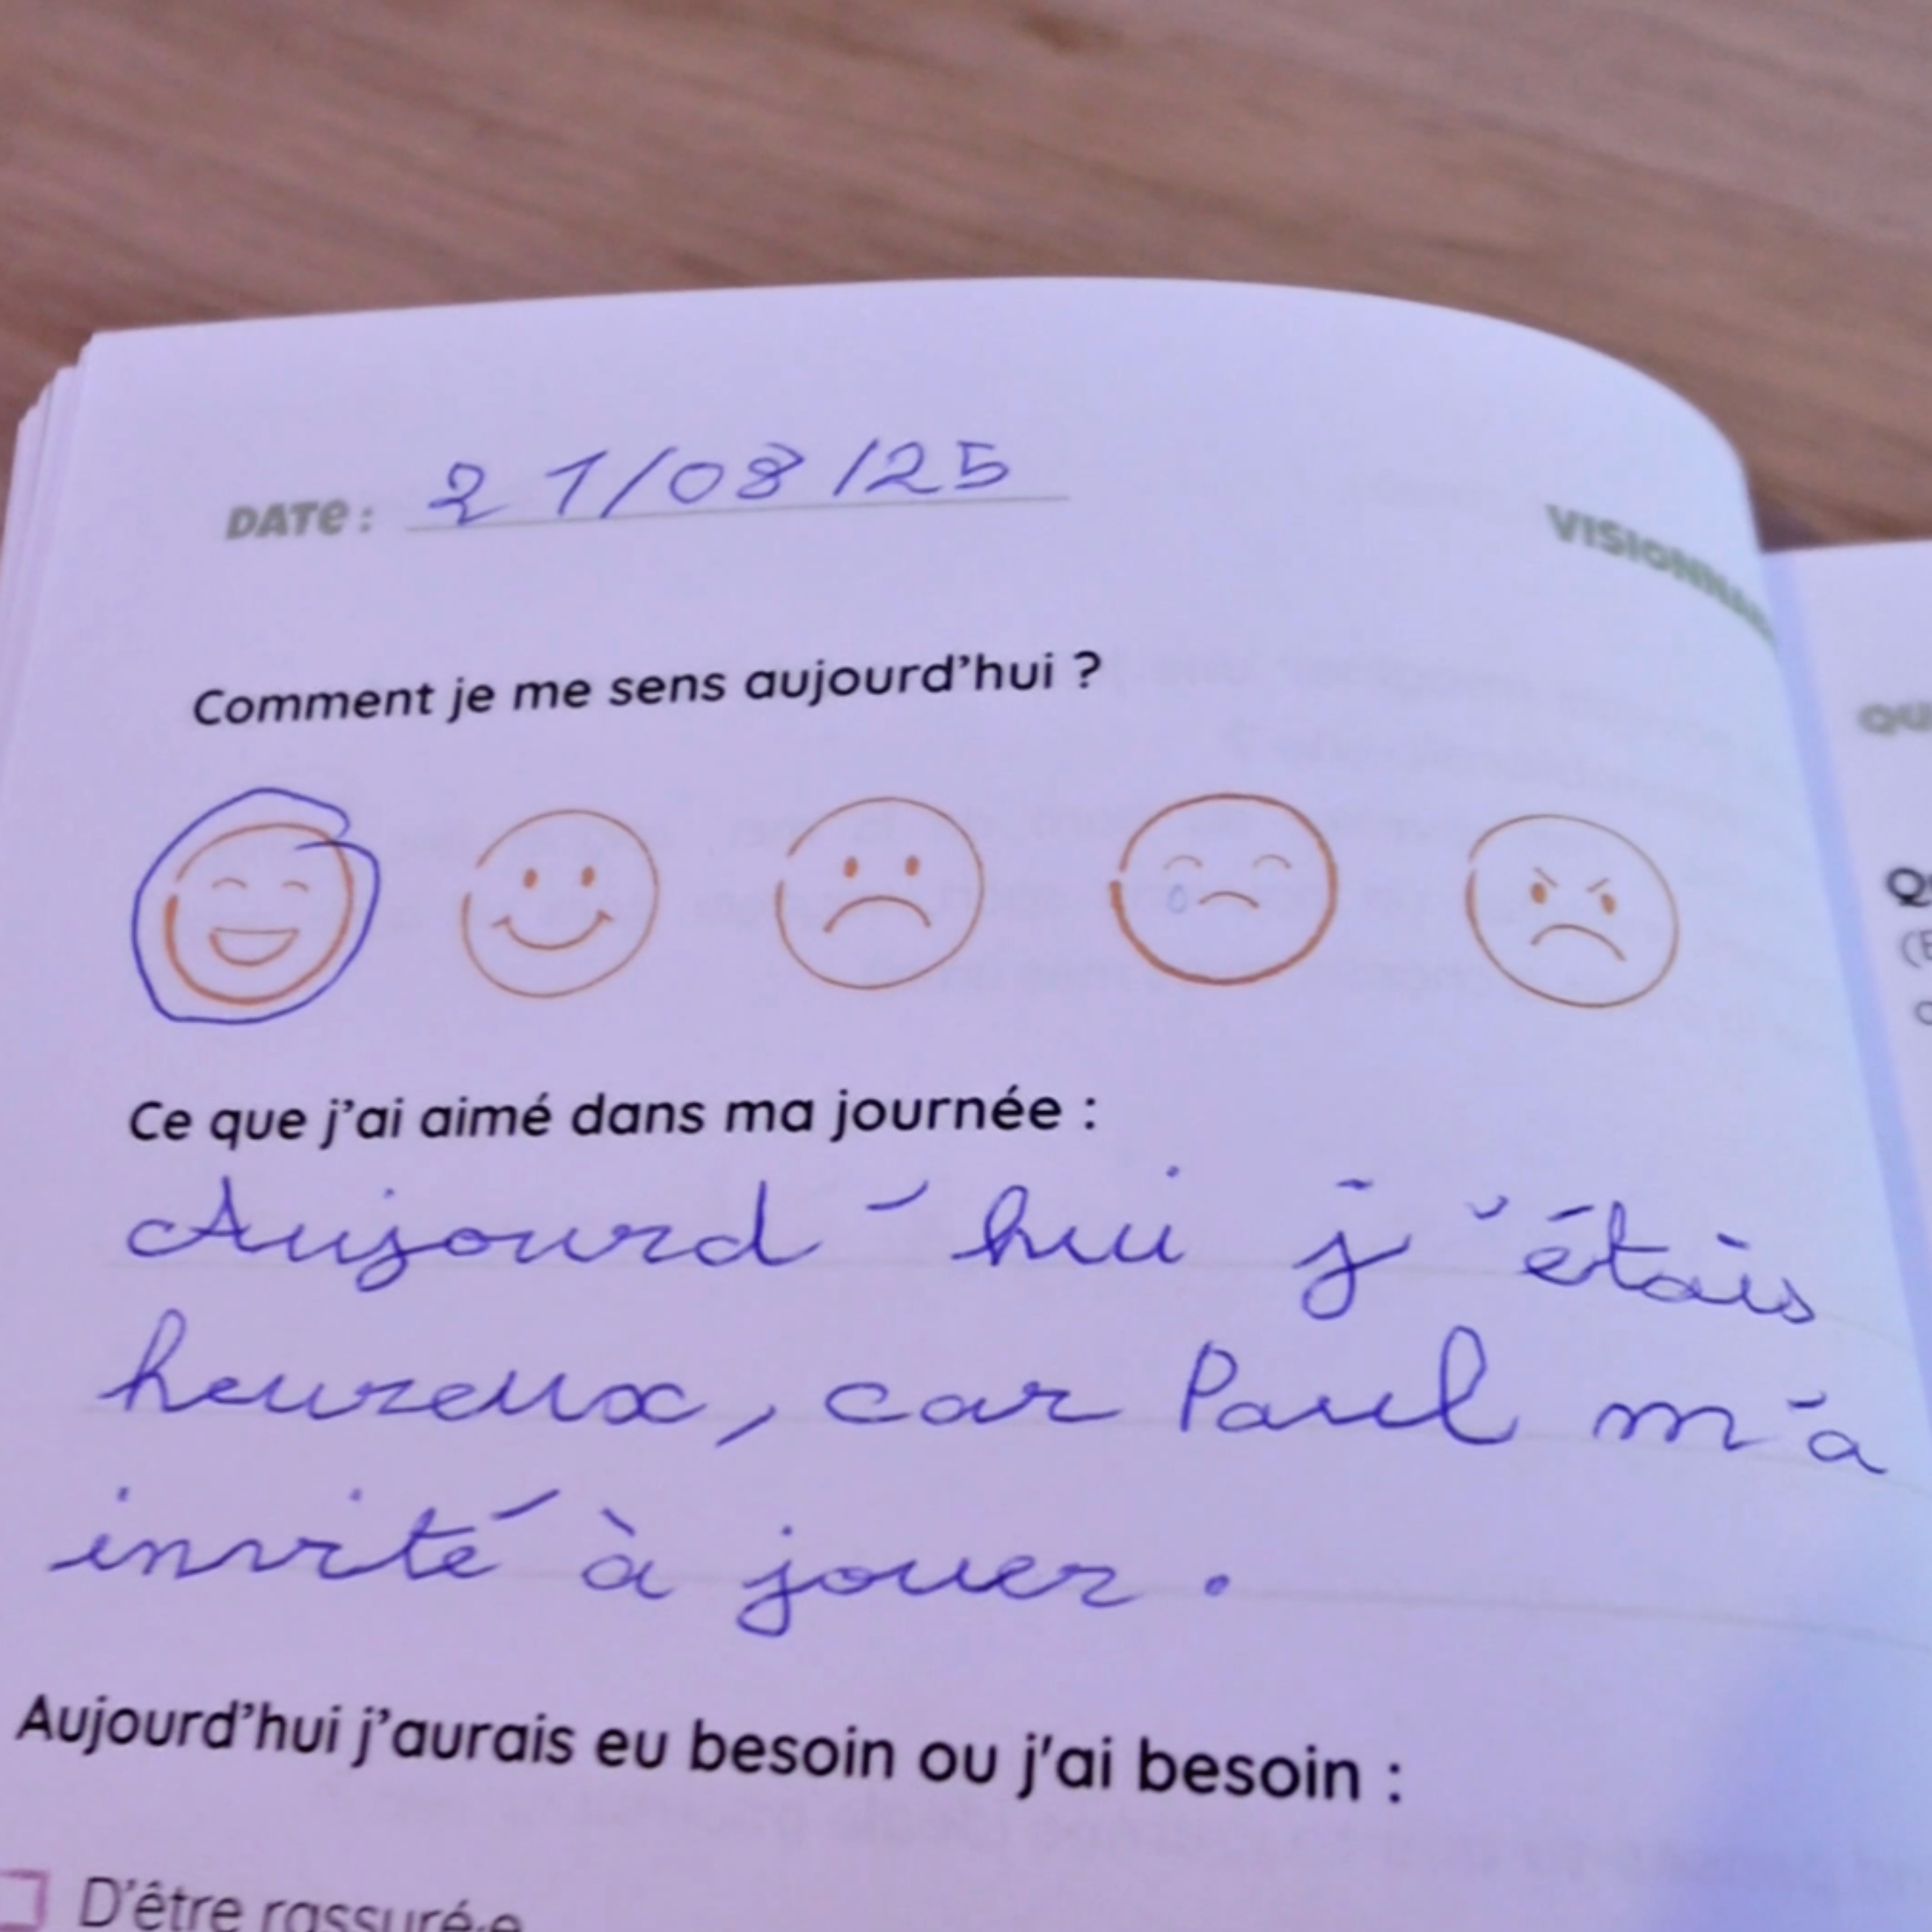 DATE : 21/08/25
Comment je me sens aujourd'hui ?
Ce que j'ai aimé dans ma journée :
Aujourd'hui j'étais
heureux, car Paul m'a
invité à jouer.
Aujourd'hui j'aurais eu besoin ou j'ai besoin :
D'être rassuré·e